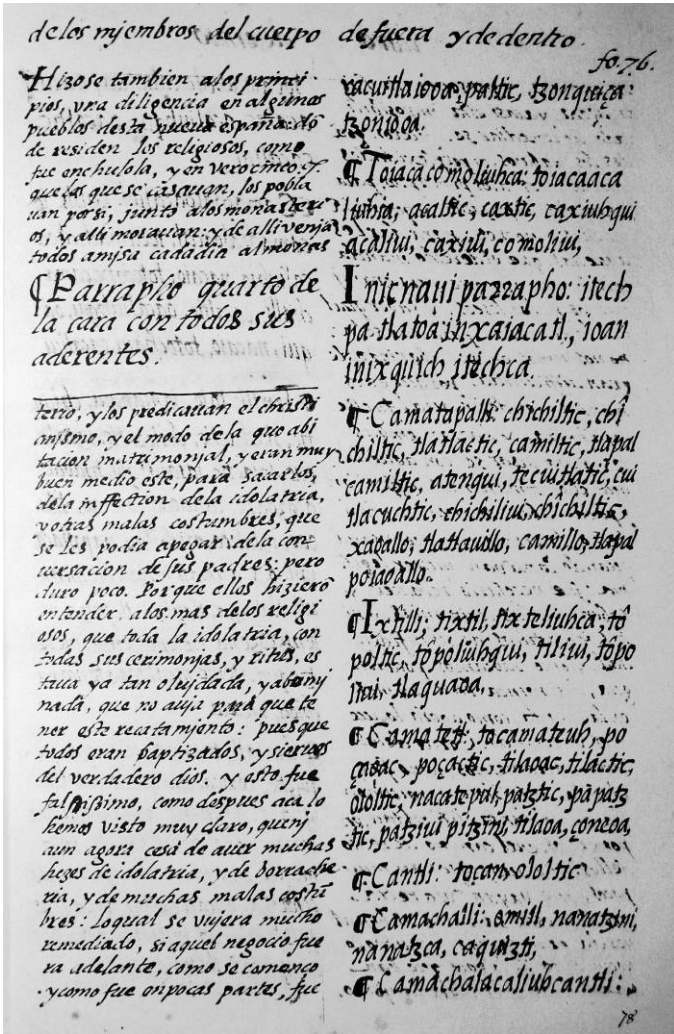 de los mjembros del cuerpo de fuera y de dentro.
fo. 76.
Hizose tambien a los princi-
pios, vna diligencia en algunos
pueblos desta nueua españa: dõ
de residen los religiosos, como
fue en cholola, y en
que los que se casauan, los pobla
uan por si, junto a los monasteri
os, y alli morauan: y de alli venjã
todos a mjsa cada dia al monas
¶ Parrapho quarto de
la cara con todos sus
aderentes.
terio, y los predicauan el christi
anjsmo, y el modo de la que abi
tacion matrimonjal, y eran muy
buen medio este, para sacarlos,
de la inffection de la idolatria,
y otras malas costumbres, que
se les podia apegar de la con
uersacion de sus padres: pero
duro poco. Porque ellos hizierõ
entender, a los mas de los religi
osos, que toda la idolatria, con
todas sus cerimonjas, y ritus, es
taua ya tan olujdada, y abomj
nada, que no auja para que te
ner este recatamiento: pues que
todos eran baptizados, y sieruos
del verdadero dios. y esto fue
falsissimo, como despues aca lo
hemos visto muy claro, que nj
aun agora cesa de auer muchas
hezes de idolatria, y de borrache
ria, y de muchas malas costũ
bres: lo qual se vujera mucho
remediado, si aquel negocio fue
ra adelante, como se començo
y como fue en pocas partes, fue
tzonquiça
¶ Toiacacomoliuhca: toiacaaca
liuhca, acaltic, caxtic, caxiuhqui
acaliui, caxiui, comoliui,
Inic naui parrapho: itech
pa tlatoa in xaiacatl, ioan
in ixquich itechca.
¶ Camatapalli: chichiltic, chi
chiltic, tlatlactic, camiltic, tlapal
camiltic, atengui, tecuitlatic, cui
tlacuchtic, chichiliui, chichiltic,
xaoallo, tlatlauillo, camillo, tlapal
poiaoallo.
¶ Ixtilli, tixtil, tixteliuhca, tõ
poltic, tõpoliuhqui, tiliui, tõpo
liui, tlaguaoa,
¶ Camatetl, tocamateuh, po
çaoac, poçactic, tilaoac, tilactic,
ololtic, nacatepul, patztic, papatz
tic, patziui pitzinj, tilaoa, çoneoa,
¶ Cantli: tocan, ololtic
¶ Camachalli: omitl, nanatzinj,
nanatzca, caquizti,
¶ Camachalacaliuhcantli:
78